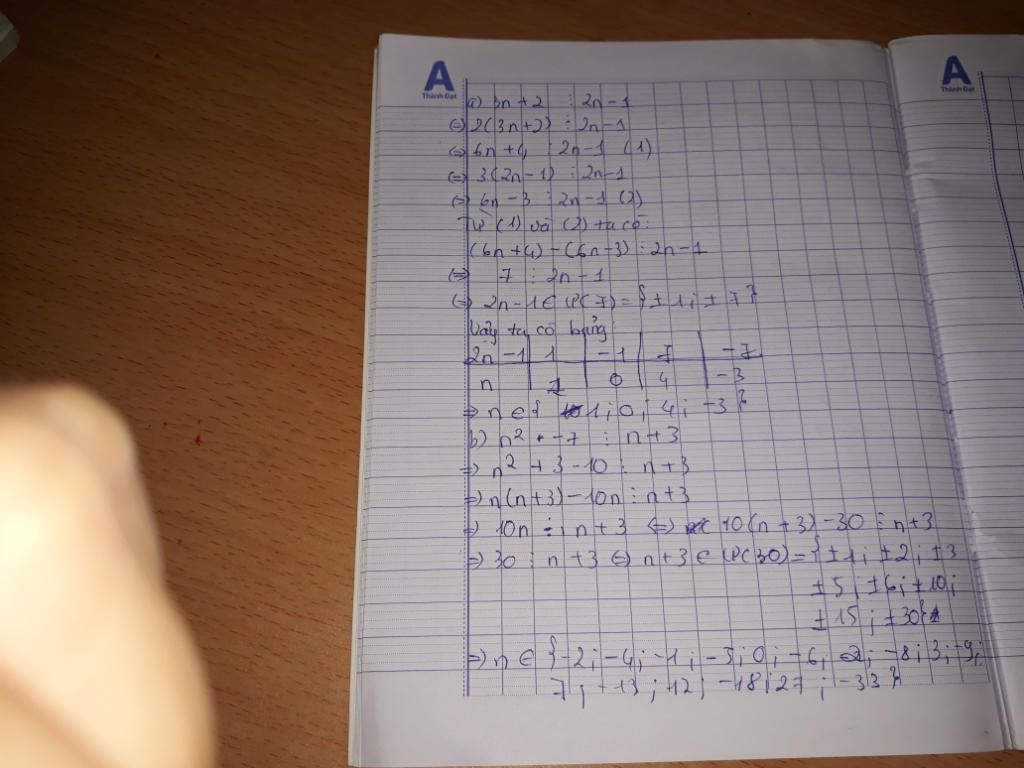 A
Thành Đạt
A
Thành Đạt
a) 3n + 2 ⋮ 2n - 1
(=) 2(3n+2) ⋮ 2n-1
(=) 6n + 4 ⋮ 2n-1 (1)
(=) 3(2n-1) ⋮ 2n-1
(=) 6n - 3 ⋮ 2n-1 (2)
Từ (1) và (2) ta có:
(6n+4) - (6n-3) ⋮ 2n-1
(=) 7 ⋮ 2n-1
(=) 2n-1 ∈ Ư(7) = {±1; ±7}
Vậy ta có bảng:
2n-1 | 1 | -1 | 7 | -7
n | 1 | 0 | 4 | -3
=> n ∈ { 1; 0; 4; -3 }
b) n² - 7 ⋮ n + 3
=> n² + 3 - 10 ⋮ n + 3
=> n(n+3) - 10n ⋮ n+3
=> 10n ⋮ n+3 <=> 10(n+3) - 30 ⋮ n+3
=> 30 ⋮ n+3 <=> n+3 ∈ Ư(30) = { ±1; ±2; ±3
±5; ±6; ±10;
±15; ±30}
=> n ∈ {-2; -4; -1; -5; 0; -6; 2; -8; 3; -9;
7; -13; 12; -18; 27; -33}